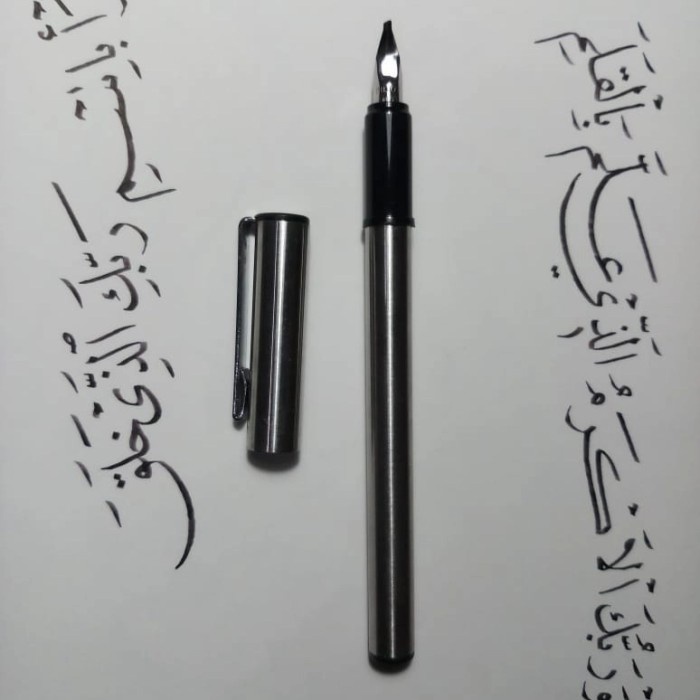 بِاسْمِ رَبِّكَ الَّذِي خَلَقَ
وَرَبُّكَ الْأَكْرَمُ الَّذِي عَلَّمَ بِالْقَلَمِ